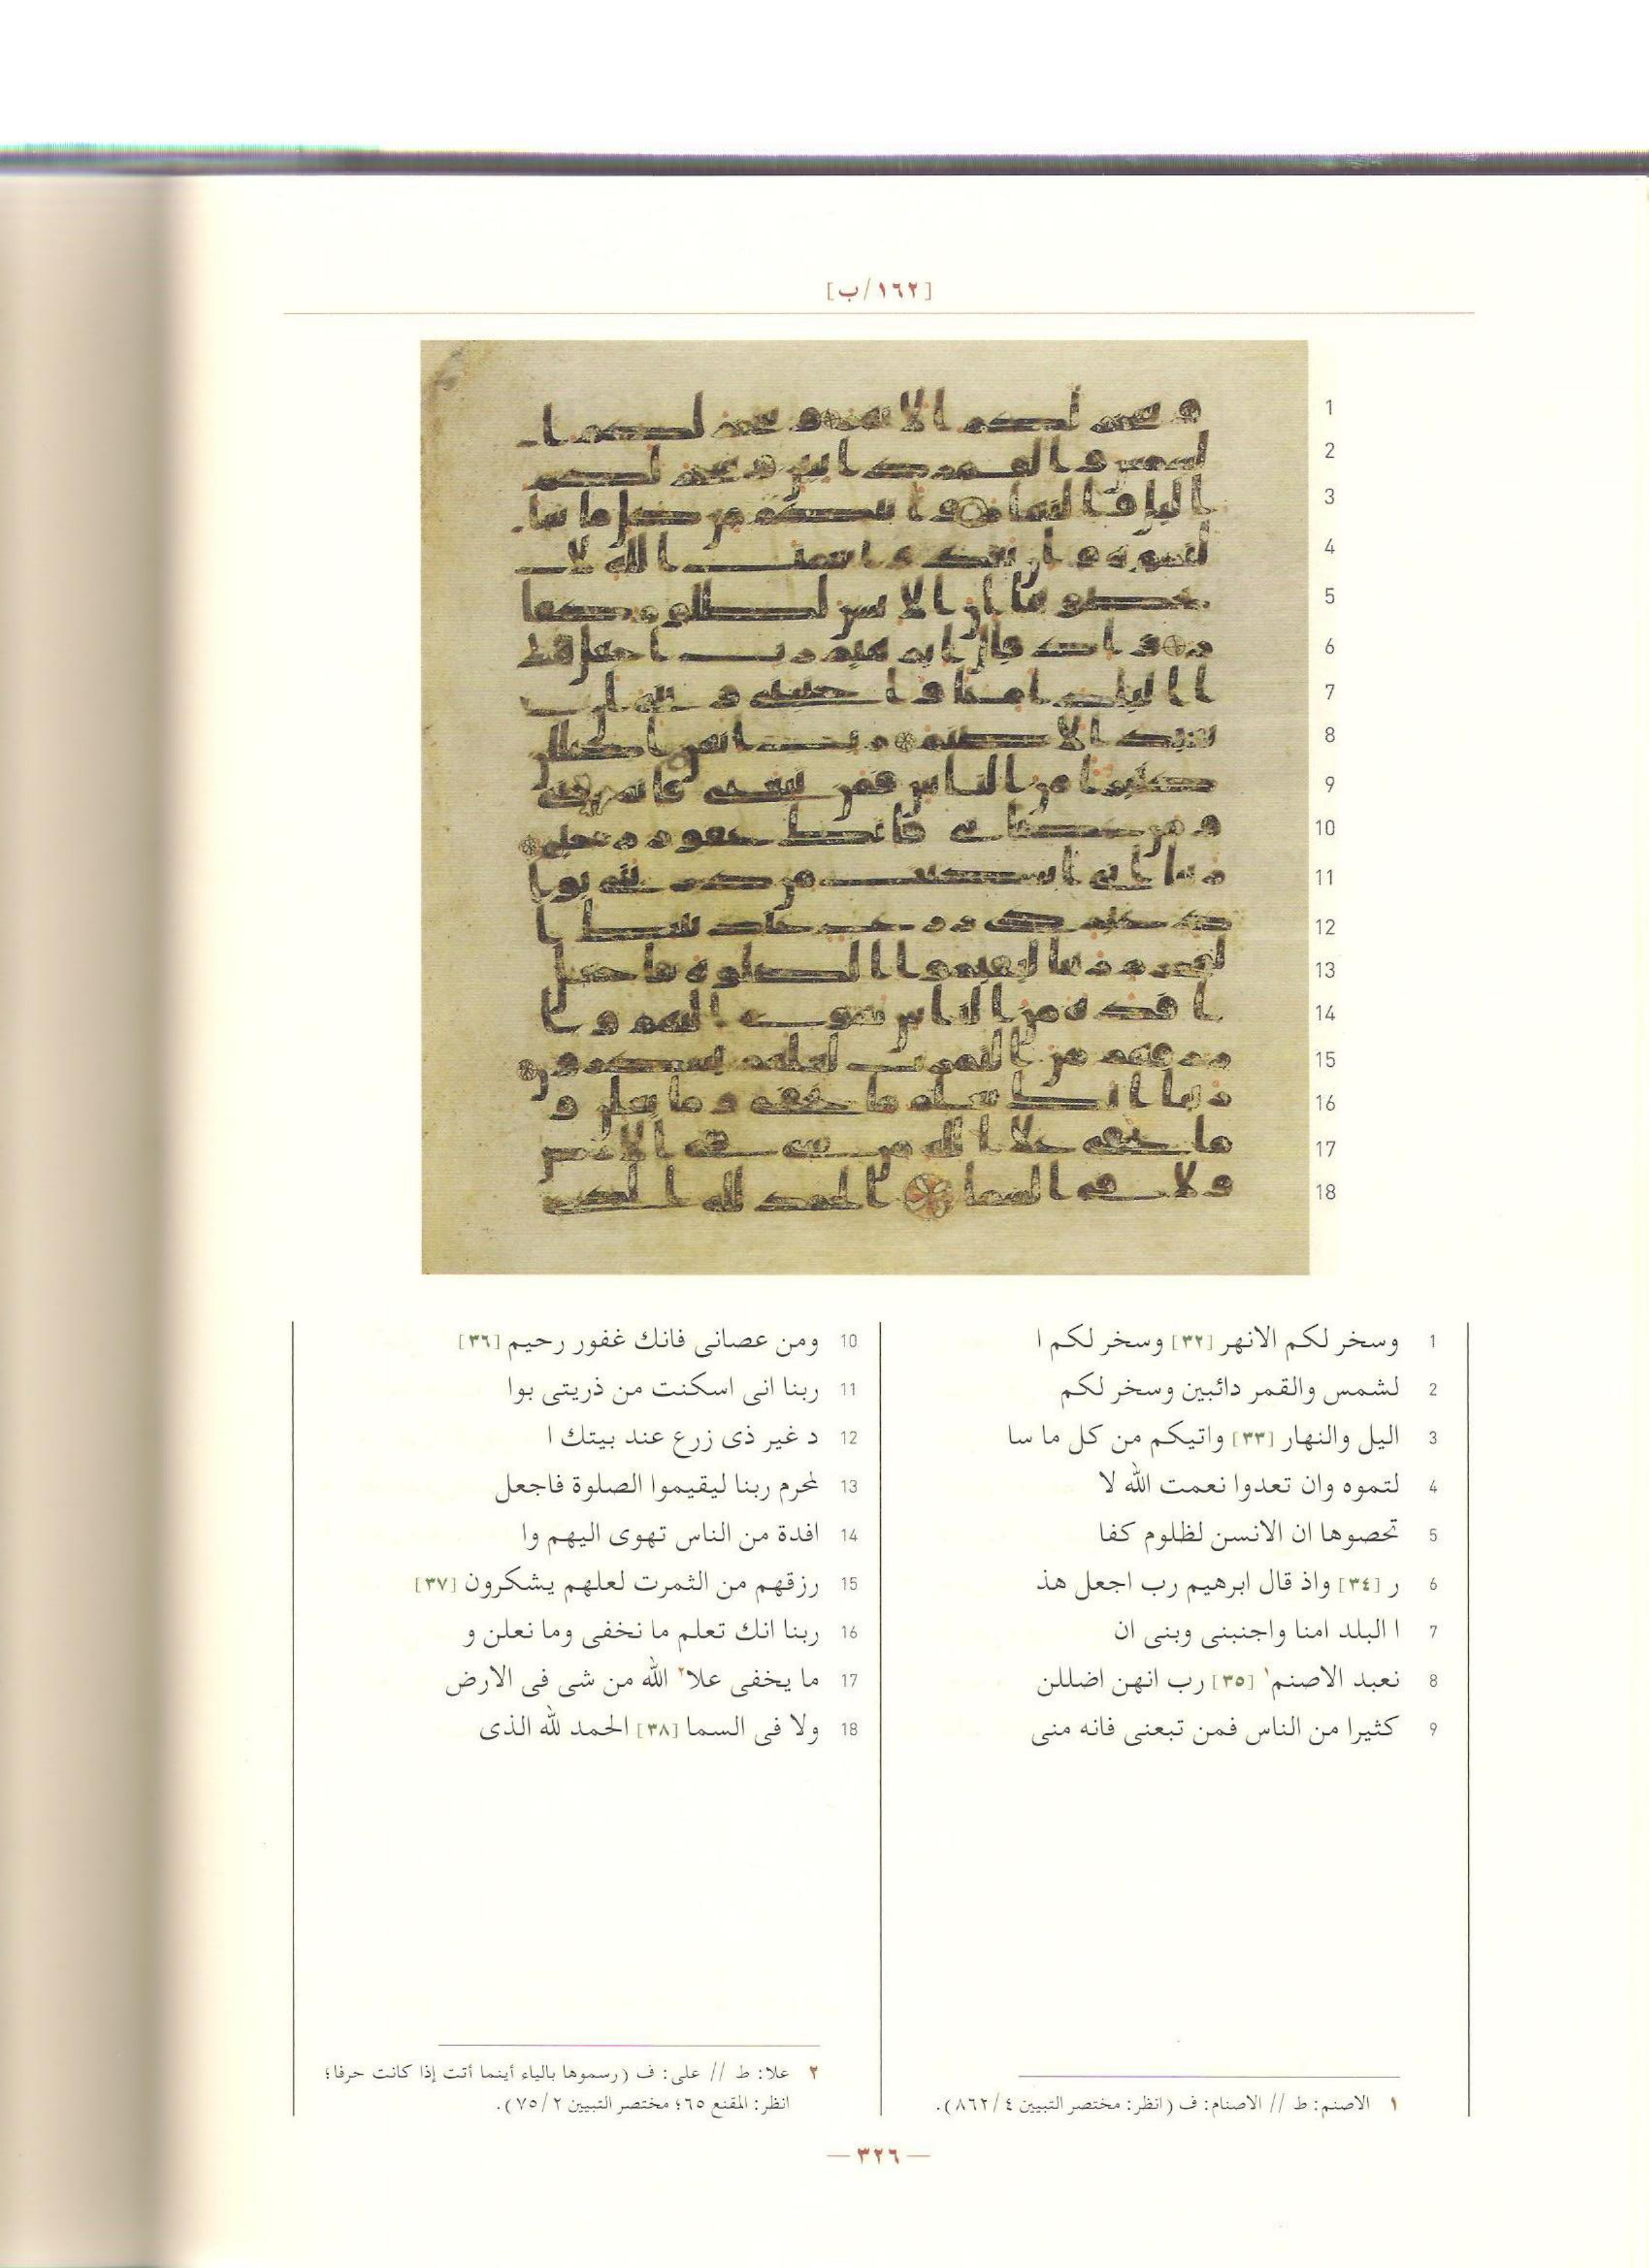 [١٦٢/ب]
1 وسخر لكم الانهر [٣٢] وسخر لكم ا
2 لشمس والقمر دائبين وسخر لكم
3 اليل والنهار [٣٣] واتيكم من كل ما سا
4 لتموه وان تعدوا نعمت الله لا
5 تحصوها ان الانسن لظلوم كفا
6 ر [٣٤] واذ قال ابرهيم رب اجعل هذ
7 ا البلد امنا واجنبنى وبنى ان
8 نعبد الاصنم١ [٣٥] رب انهن اضللن
9 كثيرا من الناس فمن تبعنى فانه منى
10 ومن عصانى فانك غفور رحيم [٣٦]
11 ربنا انى اسكنت من ذريتى بوا
12 د غير ذى زرع عند بيتك ا
13 لمحرم ربنا ليقيموا الصلوة فاجعل
14 افدة من الناس تهوى اليهم وا
15 رزقهم من الثمرت لعلهم يشكرون [٣٧]
16 ربنا انك تعلم ما نخفى وما نعلن و
17 ما يخفى علا٢ الله من شى فى الارض
18 ولا فى السما [٣٨] الحمد لله الذى
١ الاصنم: ط // الاصنام: ف (انظر: مختصر التبيين ٤/ ٨٦٢).
٢ علا: ط // على: ف (رسموها بالياء أينما أتت إذا كانت حرفا؛
انظر: المقنع ٦٥؛ مختصر التبيين ٢/ ٧٥).
— ٣٢٦ —